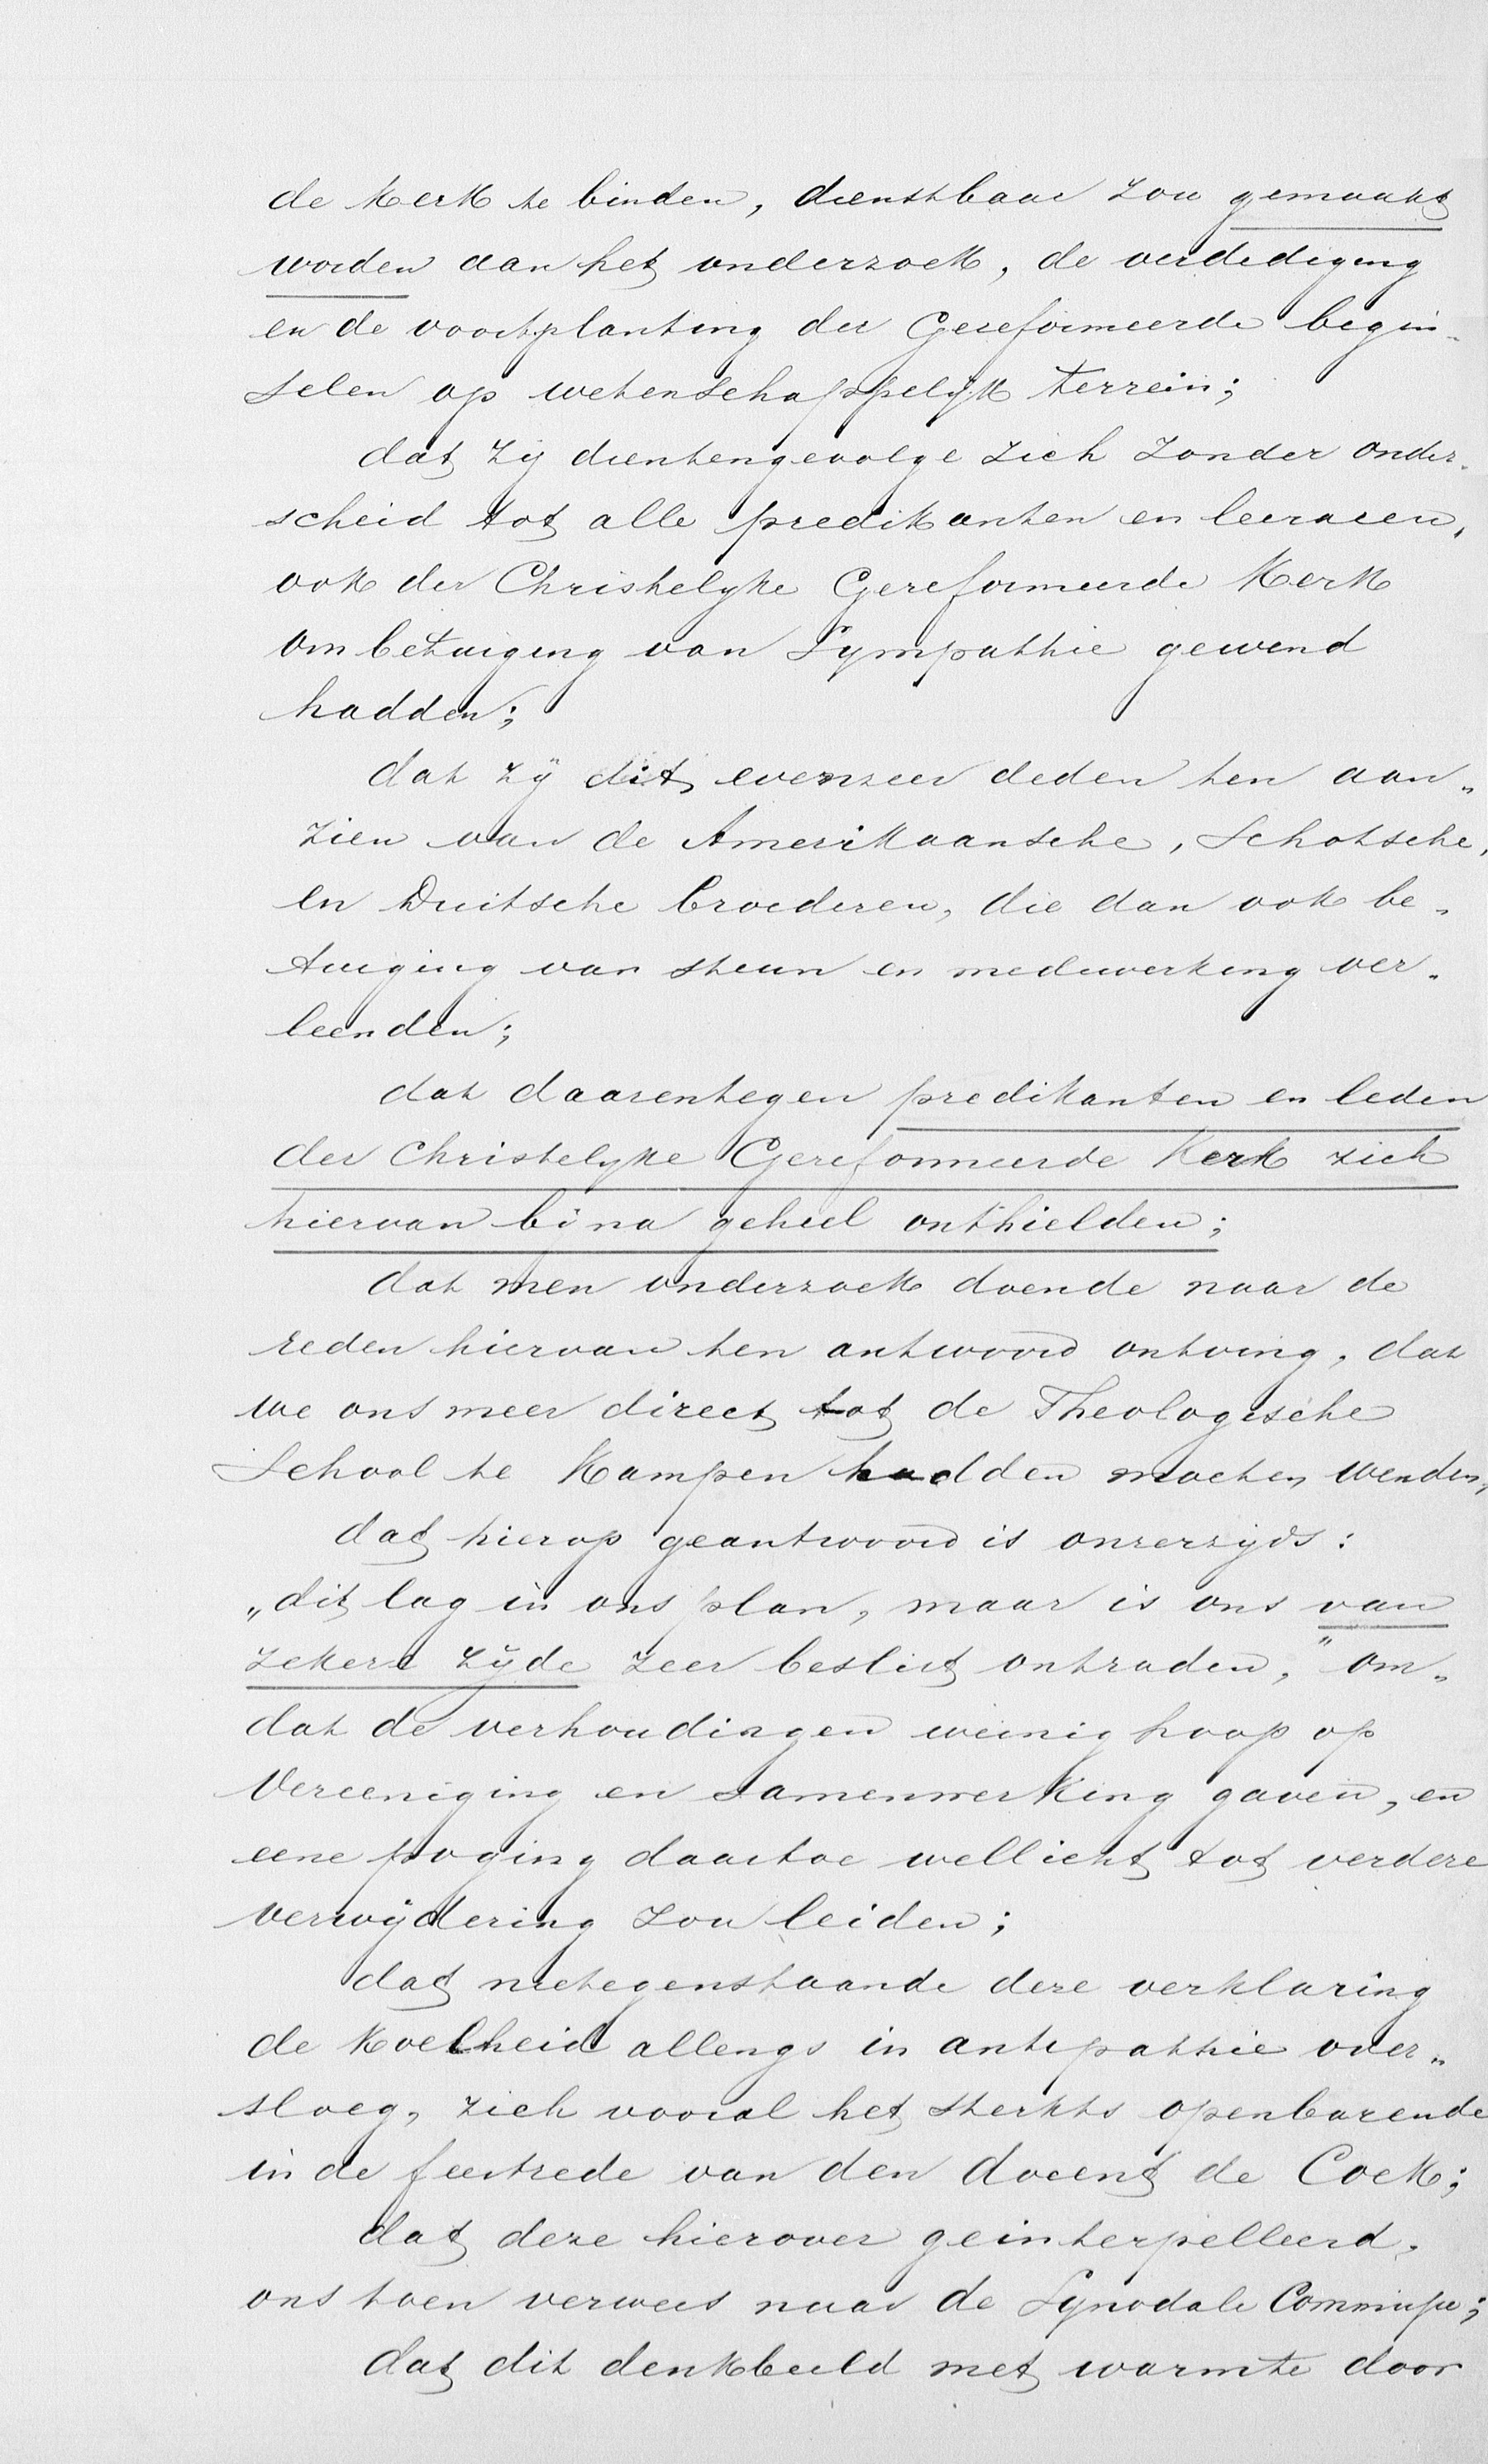 de kerk te binden, dienstbaar zou gemaakt
worden aan het onderzoek, de verdediging
en de voortplanting der Gereformeerde begin-
selen op wetenschappelijk terrein;
dat zij dientengevolge zich zonder onder-
scheid tot alle predikanten en leeraren,
ook der Christelyke Gereformeerde Kerk
om betuiging van Sympathie gewend
hadden;
dat zij dit evenzeer deden ten aan-
zien van de Amerikaansche, Schotsche,
en Duitsche broederen, die dan ook be-
tuiging van steun en medewerking ver-
leenden;
dat daarentegen predikanten en leden
der Christelyke Gereformeerde Kerk zich
hiervan bijna geheel onthielden;
dat men onderzoek doende naar de
reden hiervan ten antwoord ontving, dat
we ons meer direct tot de Theologische
School te Kampen hadden moeten wenden,
dat hierop geantwoord is onzerzijds:
„dit lag in ons plan, maar is ons van
zekere zijde zeer beslist ontraden," om-
dat de verhoudingen weinig hoop op
Vereeniging en samenwerking gaven, en
eene poging daartoe wellicht tot verdere
verwijdering zou leiden;
dat niettegenstaande deze verklaring
de koelheid allengs in antipathie over-
sloeg, zich vooral het sterkts openbarende
in de feestrede van den docent de Cock;
dat deze hierover geinterpelleerd,
ons toen verwees naar de Synodale Commissie;
dat dit denkbeeld met warmte door